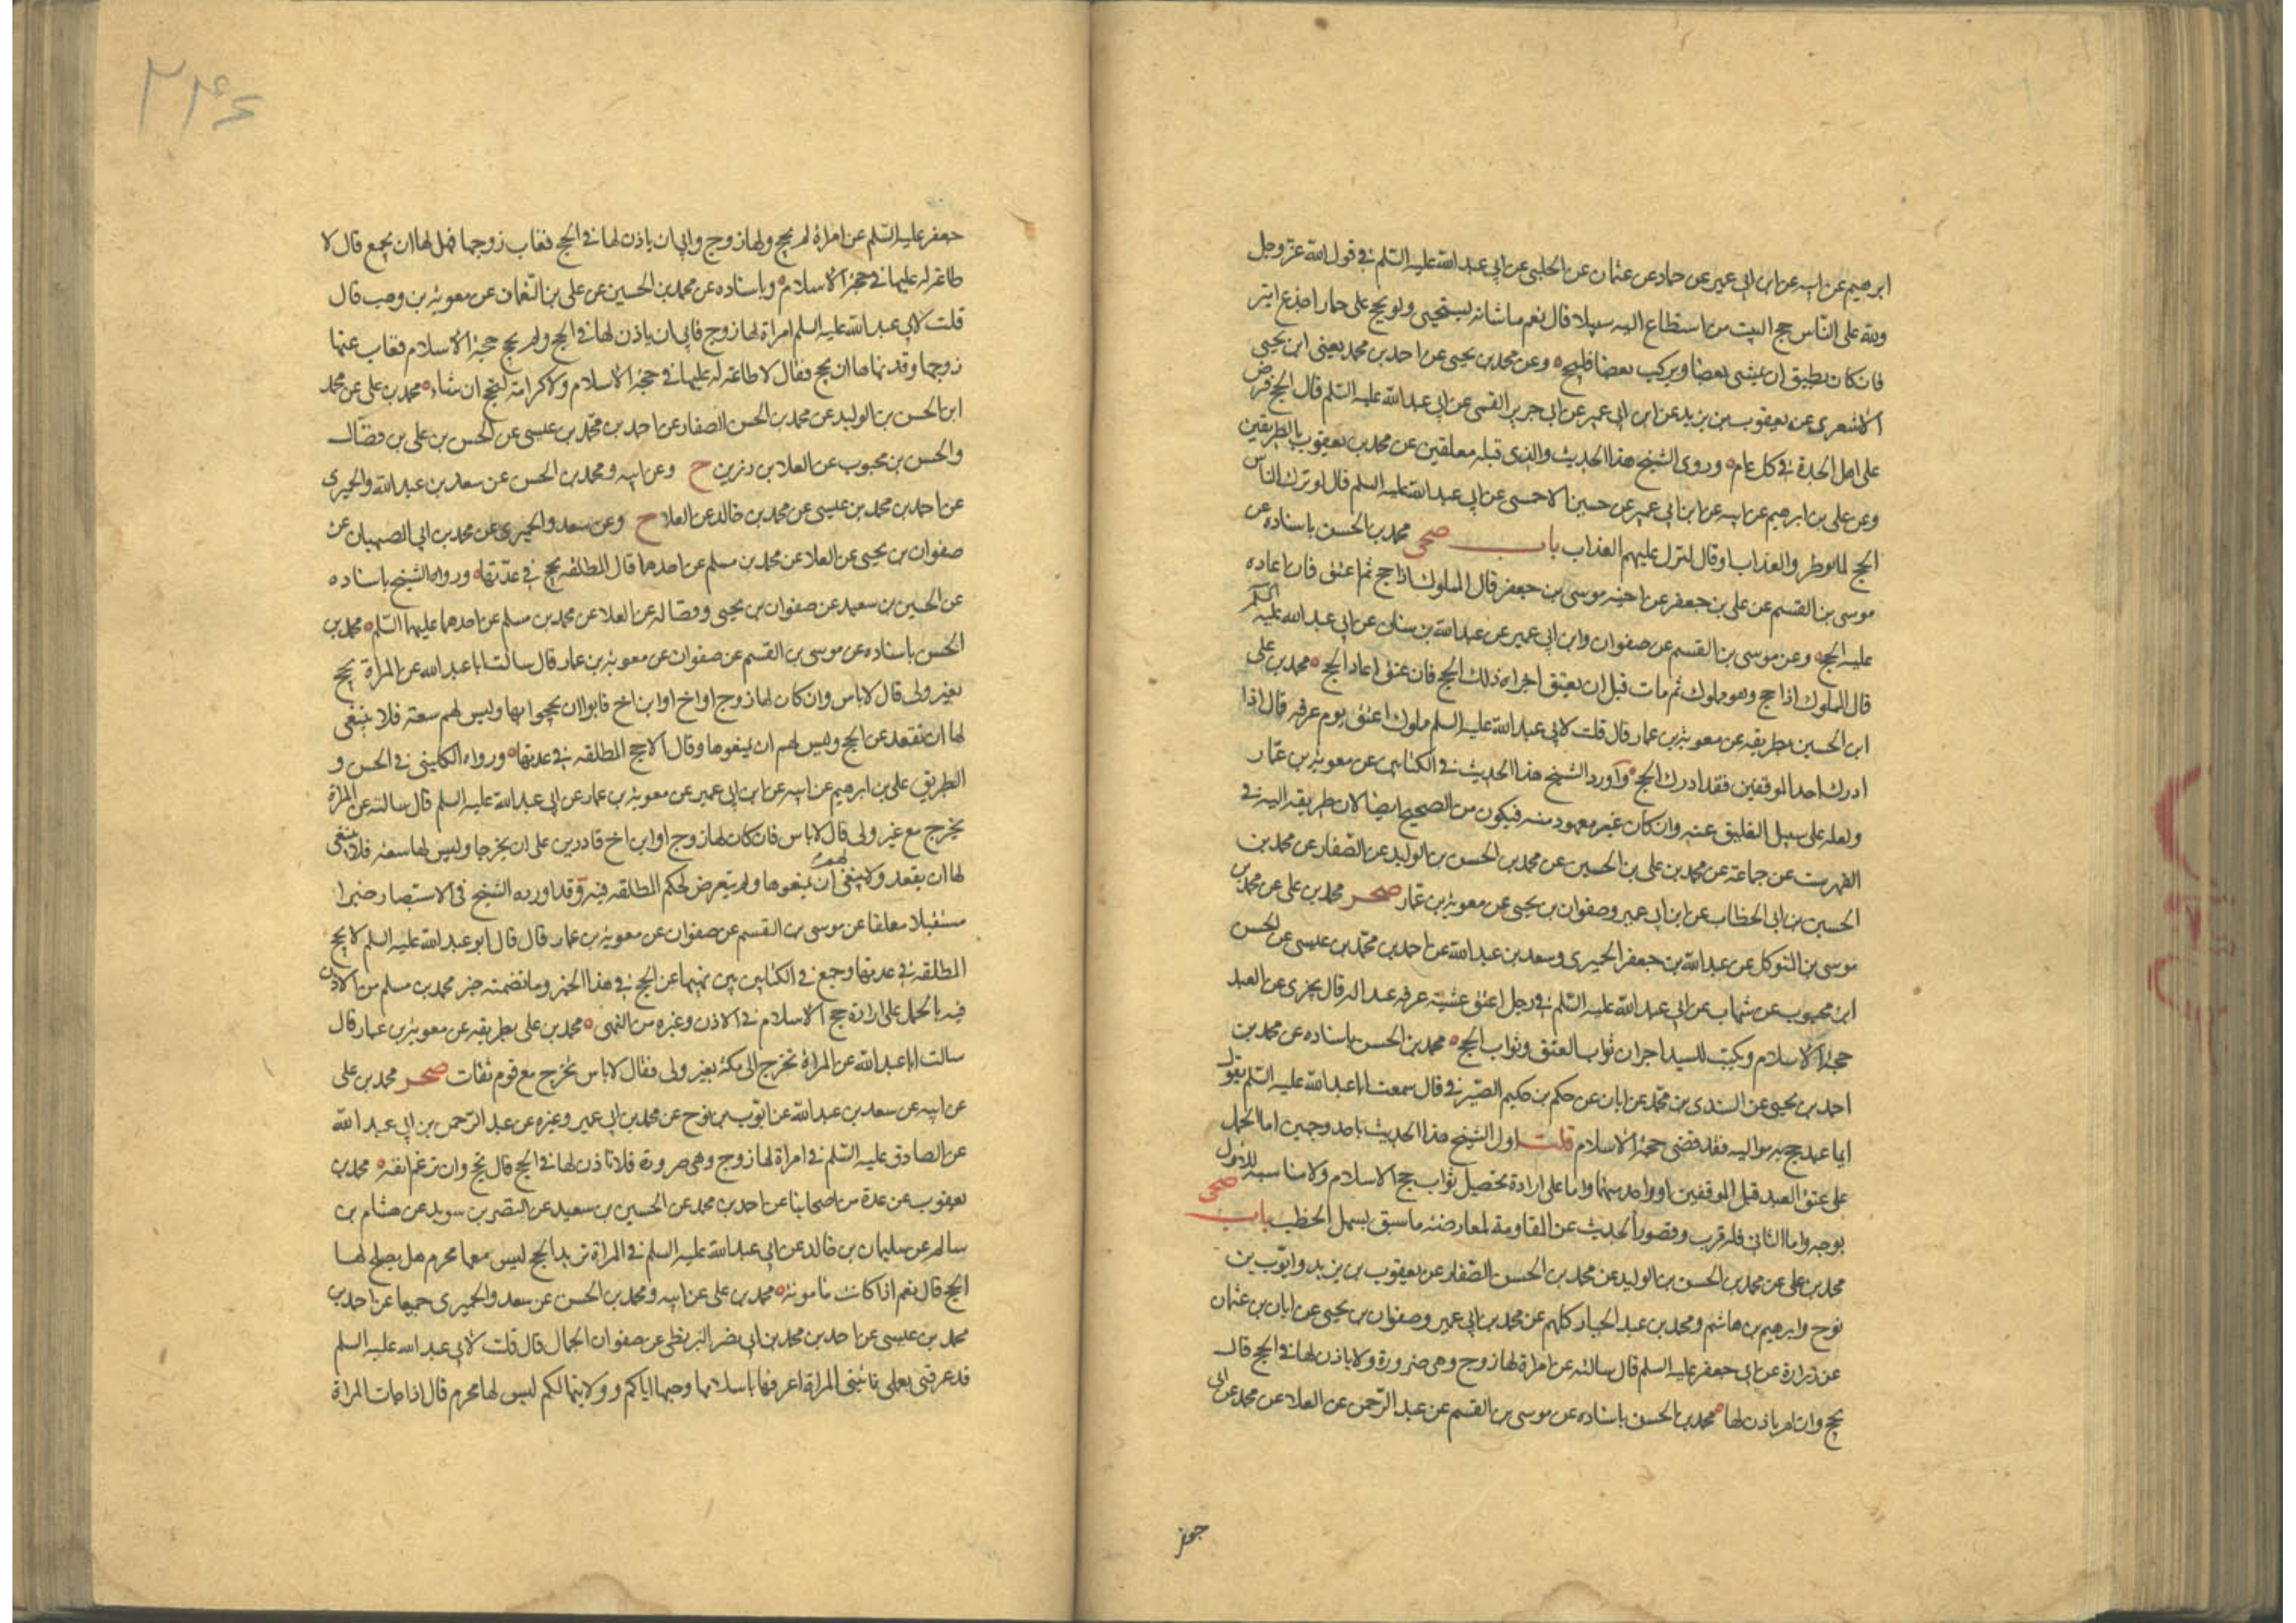 ابرهيم عن ابيه عن ابن ابي عمير عن حماد عن عثمان عن الحلبي عن ابي عبد الله عليه السلم في قول الله عز وجل
ولله على الناس حج البيت من استطاع اليه سبيلا قال نعم ما شانه يستحيي ولو يحج على حمار اجذع ابتر
فان كان يطيق ان يمشي بعضا ويركب بعضا فليحج ه وعن محمد بن يحيى عن احمد بن محمد يعني ابن يحيى
الاشعري عن يعقوب بن يزيد عن ابن ابي عمير عن ابي جرير القمي عن ابي عبد الله عليه السلم قال الحج فرض
على اهل الجدة في كل عام ه وروى الشيخ هذا الحديث والذي قبله معلقين عن محمد بن يعقوب بالطريقين
وعن علي بن ابرهيم عن ابيه عن ابن ابي عمير عن حسين الاحمسي عن ابي عبد الله عليه السلم قال لو ترك الناس
الحج لما نوظروا العذاب او قال لنزل عليهم العذاب باب صحي محمد بن الحسن باسناده عن
موسى بن القسم عن علي بن جعفر عن اخيه موسى بن جعفر قال المملوك اذا حج ثم اعتق فان اعاده
عليه الحج ه وعن موسى بن القسم عن صفوان وابن ابي عمير عن عبد الله بن سنان عن ابي عبد الله عليه السلم
قال المملوك اذا حج وهو مملوك ثم مات قبل ان يعتق اجزاه ذلك الحج فان عتق اعاد الحج ه محمد بن علي
ابن الحسين بطريقه عن معوية بن عمار قال قلت لابي عبد الله عليه السلم مملوك اعتق يوم عرفه قال اذا
ادرك احد الموقفين فقد ادرك الحج ه واورد الشيخ هذا الحديث في الكتابين عن معوية بن عمار
ولعله على سبيل التعليق عنه وان كان غير معهود منه فيكون من الصحيح ايضا لان طريقه اليه في
الفهرست عن جماعة عن محمد بن علي بن الحسين عن محمد بن الحسن بن الوليد عن الصفار عن محمد بن
الحسين بن ابي الخطاب عن ابن ابي عمير وصفوان بن يحيى عن معوية بن عمار صحر محمد بن علي عن محمد بن
موسى بن المتوكل عن عبد الله بن جعفر الحميري وسعد بن عبد الله عن احمد بن محمد بن عيسى عن الحسن
ابن محبوب عن شهاب عن ابي عبد الله عليه السلم في رجل اعتق عشية عرفه عبدا له قال يجزي عن العبد
حجة الاسلام ويكتب للسيد اجران ثواب العتق وثواب الحج ه محمد بن الحسن باسناده عن محمد بن
احمد بن يحيى عن السندي بن محمد عن ابان عن حكم بن حكيم الصيرفي قال سمعت ابا عبد الله عليه السلم يقول
ايما عبد حج به مواليه فقد قضى حجة الاسلام قلت اول الشيخ هذا الحديث باحد وجهين اما الحمل
على عتق العبد قبل الموقفين او واحد منهما واما على ارادة تحصيل ثواب حج الاسلام ولا مناسبه للاول
بوجه واما الثاني فله قرب وقصور الحديث عن المقاومة لمعارضته ما سبق يسهل الخطب باب صحي
محمد بن علي عن محمد بن الحسن بن الوليد عن محمد بن الحسن الصفار عن يعقوب بن يزيد وايوب بن
نوح وابرهيم بن هاشم ومحمد بن عبد الجبار كلهم عن محمد بن ابي عمير وصفوان بن يحيى عن ابان بن عثمان
عن زرارة عن ابي جعفر عليه السلم قال سالته عن امراة لها زوج وهي ضرورة ولا ياذن لها في الحج قال
تحج وان لم ياذن لها ه محمد بن الحسن باسناده عن موسى بن القسم عن عبد الرحمن عن العلا عن محمد عن ابي
جعفر
۲۲۴
جعفر عليه السلم عن امراة لم تحج ولها زوج وابى ان ياذن لها في الحج فغاب زوجها فهل لها ان تحج قال لا
طاعة له عليها في حجة الاسلام ه وباسناده عن محمد بن الحسين عن علي بن النعمان عن معوية بن وهب قال
قلت لابي عبد الله عليه السلم امراة لها زوج فابى ان ياذن لها في الحج ولم تحج حجة الاسلام فغاب عنها
زوجها وقد نهاها ان تحج فقال لا طاعة له عليها في حجة الاسلام ولا كرامة لتحج ان شاء ه محمد بن علي عن محمد
ابن الحسن بن الوليد عن محمد بن الحسن الصفار عن احمد بن محمد بن عيسى عن الحسن بن علي بن فضال
والحسن بن محبوب عن العلا بن رزين ح وعن ابيه ومحمد بن الحسن عن سعد بن عبد الله والحميري
عن احمد بن محمد بن عيسى عن محمد بن خالد عن العلا ح وعن سعد والحميري عن محمد بن ابي الصهبان عن
صفوان بن يحيى عن العلا عن محمد بن مسلم عن احدهما قال المطلقه تحج في عدتها ه ورواه الشيخ باسناده
عن الحسين بن سعيد عن صفوان بن يحيى وفضاله عن العلا عن محمد بن مسلم عن احدهما عليهما السلم ه محمد بن
الحسن باسناده عن موسى بن القسم عن صفوان عن معوية بن عمار قال سالت ابا عبد الله عن المراة تحج
بغير ولي قال لا باس وان كان لها زوج او اخ او ابن اخ فابوا ان يحجوا بها وليس لهم سعة فلا ينبغي
لها ان تقعد عن الحج وليس لهم ان يمنعوها وقال لا تحج المطلقه في عدتها ه ورواه الكليني في الحسن و
الطريق علي بن ابرهيم عن ابيه عن ابن ابي عمير عن معوية بن عمار عن ابي عبد الله عليه السلم قال سالته عن المراة
تخرج مع غير ولي قال لا باس فان كان لها زوج او ابن اخ قادرين على ان يخرجا وليس لها سعة فلا ينبغي
لها ان تقعد ولا ينبغي لهم ان يمنعوها ولم يتعرض لحكم المطلقه فيه وقد اورده الشيخ في الاستبصار خبرا
مستقبلا معلقا عن موسى بن القسم عن صفوان عن معوية بن عمار قال قال ابو عبد الله عليه السلم لا تحج
المطلقه في عدتها وجمع في الكتابين بين نهيها عن الحج في هذا الخبر وما تضمنه خبر محمد بن مسلم من الاذن
فيه بالحمل على ارادة حج الاسلام في الاذن وغيره من النهي ه محمد بن علي بطريقه عن معوية بن عمار قال
سالت ابا عبد الله عن المراة تخرج الى مكة بغير ولي فقال لا باس تخرج مع قوم ثقات صحر محمد بن علي
عن ابيه عن سعد بن عبد الله عن ايوب بن نوح عن محمد بن ابي عمير وغيره عن عبد الرحمن بن ابي عبد الله
عن الصادق عليه السلم في امراة لها زوج وهي صرورة فلا تاذن لها في الحج قال تحج وان رغم انفه ه محمد بن
يعقوب عن عدة من اصحابنا عن احمد بن محمد عن الحسين بن سعيد عن النضر بن سويد عن هشام بن
سالم عن سليمان بن خالد عن ابي عبد الله عليه السلم في المراة تريد الحج ليس معها محرم هل يصلح لها
الحج قال نعم اذا كانت مامونة ه محمد بن علي عن ابيه ومحمد بن الحسن عن سعد والحميري جميعا عن احمد بن
محمد بن عيسى عن احمد بن محمد بن ابي نصر البزنطي عن صفوان الجمال قال قلت لابي عبد الله عليه السلم
قد عرفتني بعلمي تاتيني المراة اعرفها باسلامها وحبها اياكم وولايتها لكم ليس لها محرم قال اذا جات المراة